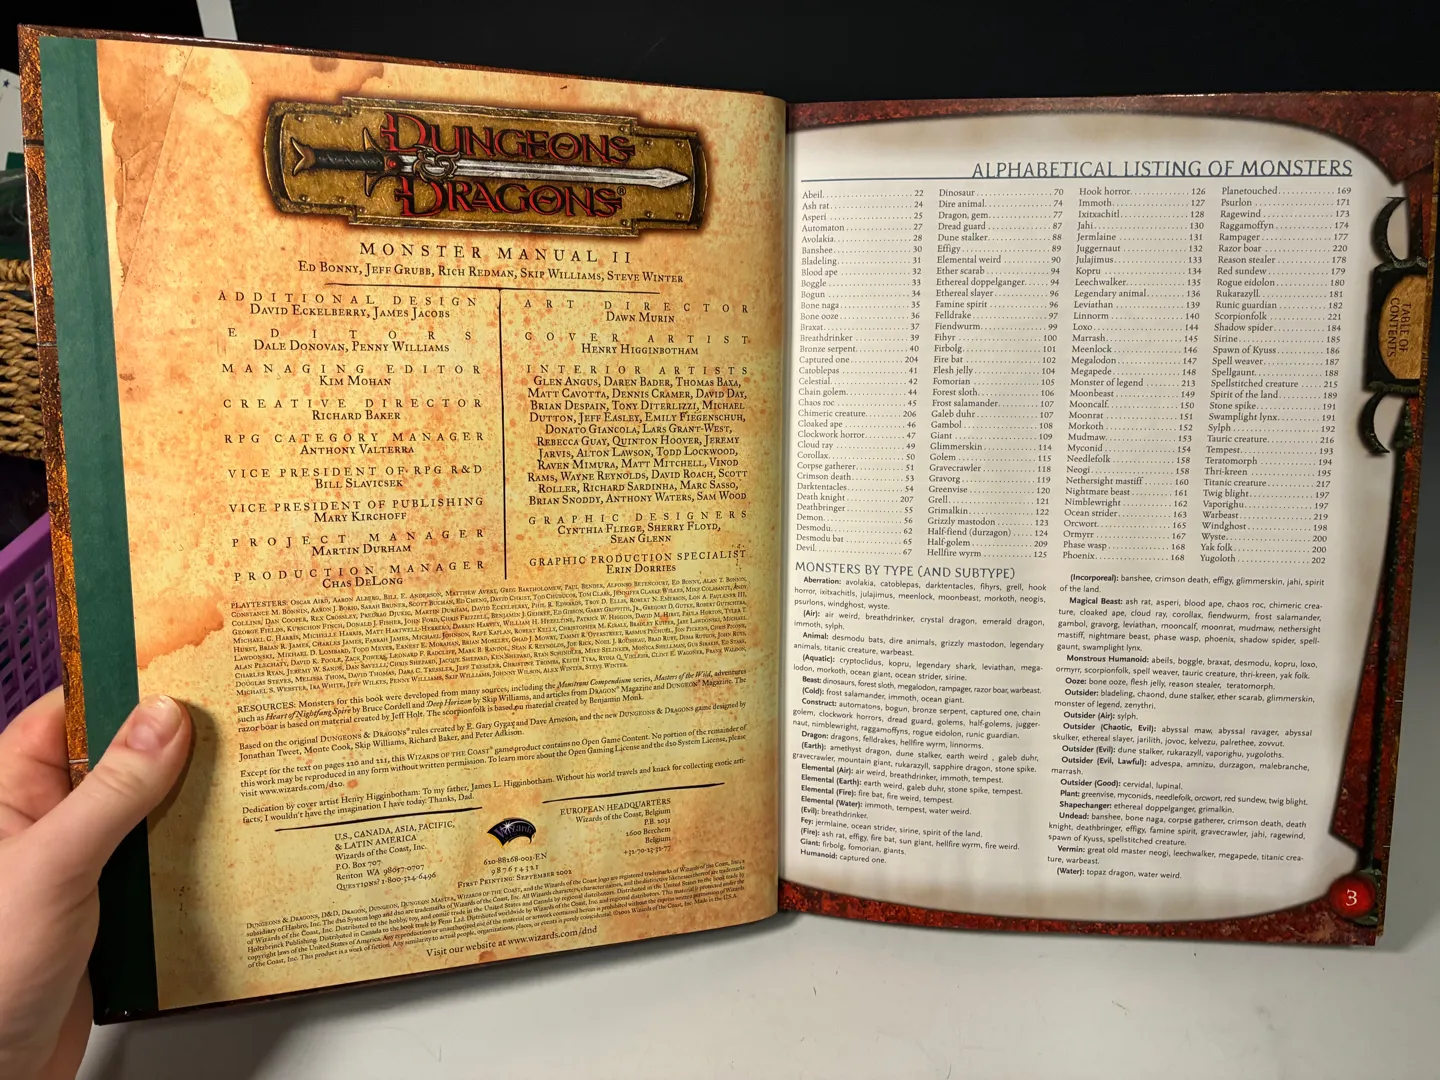 DUNGEONS
&
DRAGONS®
MONSTER MANUAL II
ED BONNY, JEFF GRUBB, RICH REDMAN, SKIP WILLIAMS, STEVE WINTER
ADDITIONAL DESIGN
DAVID ECKELBERRY, JAMES JACOBS
EDITORS
DALE DONOVAN, PENNY WILLIAMS
MANAGING EDITOR
KIM MOHAN
CREATIVE DIRECTOR
RICHARD BAKER
RPG CATEGORY MANAGER
ANTHONY VALTERRA
VICE PRESIDENT OF RPG R&D
BILL SLAVICSEK
VICE PRESIDENT OF PUBLISHING
MARY KIRCHOFF
PROJECT MANAGER
MARTIN DURHAM
PRODUCTION MANAGER
CHAS DELONG
ART DIRECTOR
DAWN MURIN
COVER ARTIST
HENRY HIGGINBOTHAM
INTERIOR ARTISTS
GLEN ANGUS, DAREN BADER, THOMAS BAXA,
MATT CAVOTTA, DENNIS CRAMER, DAVID DAY,
BRIAN DESPAIN, TONY DITERLIZZI, MICHAEL
DUTTON, JEFF EASLEY, EMILY FIEGENSCHUH,
DONATO GIANCOLA, LARS GRANT-WEST,
REBECCA GUAY, QUINTON HOOVER, JEREMY
JARVIS, ALTON LAWSON, TODD LOCKWOOD,
RAVEN MIMURA, MATT MITCHELL, VINOD
RAMS, WAYNE REYNOLDS, DAVID ROACH, SCOTT
ROLLER, RICHARD SARDINHA, MARC SASSO,
BRIAN SNODDY, ANTHONY WATERS, SAM WOOD
GRAPHIC DESIGNERS
CYNTHIA FLIEGE, SHERRY FLOYD,
SEAN GLENN
GRAPHIC PRODUCTION SPECIALIST
ERIN DORRIES
RESOURCES: Monsters for this book were developed from many sources, including the Monstrous Compendium series, Masters of the Wild, adventures
such as Heart of Nightfang Spire by Bruce Cordell and Deep Horizon by Skip Williams, and articles from DRAGON® Magazine and DUNGEON® Magazine. The
razor boar is based on material created by Jeff Holt. The scorpionfolk is based on material created by Benjamin Monk.
Based on the original DUNGEONS & DRAGONS® rules created by E. Gary Gygax and Dave Arneson, and the new DUNGEONS & DRAGONS game designed by
Jonathan Tweet, Monte Cook, Skip Williams, Richard Baker, and Peter Adkison.
Except for the text on pages 220 and 221, this WIZARDS OF THE COAST® game product contains no Open Game Content. No portion of the remainder of
this work may be reproduced in any form without written permission. To learn more about the Open Gaming License and the d20 System License, please
visit www.wizards.com/d20.
Dedication by cover artist Henry Higginbotham: To my father, James L. Higginbotham. Without his world travels and knack for collecting exotic arti-
facts, I wouldn't have the imagination I have today. Thanks, Dad.
U.S., CANADA, ASIA, PACIFIC,
& LATIN AMERICA
Wizards of the Coast, Inc.
P.O. Box 707
Renton WA 98057-0707
QUESTIONS? 1-800-324-6496
Wizards
620-88168-001-EN
9 8 7 6 5 4 3 2 1
FIRST PRINTING: SEPTEMBER 2002
EUROPEAN HEADQUARTERS
Wizards of the Coast, Belgium
P.B. 2031
2600 Berchem
Belgium
+32-70-23-32-77
Visit our website at www.wizards.com/dnd
ALPHABETICAL LISTING OF MONSTERS
Abeil 22
Ash rat 24
Asperi 25
Automaton 27
Avolakia 28
Banshee 30
Bladeling 31
Blood ape 32
Boggle 33
Bogun 34
Bone naga 35
Bone ooze 36
Braxat 37
Breathdrinker 39
Bronze serpent 40
Captured one 204
Catoblepas 41
Celestial 42
Chain golem 44
Chaos roc 45
Chimeric creature 206
Cloaked ape 46
Clockwork horror 47
Cloud ray 49
Corollax 50
Corpse gatherer 51
Crimson death 53
Darktentacles 54
Death knight 207
Deathbringer 55
Demon 56
Desmodu 62
Desmodu bat 65
Devil 67
Dinosaur 70
Dire animal 74
Dragon, gem 77
Dread guard 87
Dune stalker 88
Effigy 89
Elemental weird 90
Ether scarab 94
Ethereal doppelganger 94
Ethereal slayer 96
Famine spirit 96
Felldrake 97
Fiendwurm 99
Fihyr 100
Firbolg 101
Fire bat 102
Flesh jelly 104
Fomorian 105
Forest sloth 106
Frost salamander 107
Galeb duhr 107
Gambol 108
Giant 109
Glimmerskin 114
Golem 115
Gravecrawler 118
Gravorg 119
Greenvise 120
Grell 121
Grimalkin 122
Grizzly mastodon 123
Half-fiend (durzagon) 124
Half-golem 209
Hellfire wyrm 125
Hook horror 126
Immoth 127
Ixitxachitl 128
Jahi 130
Jermlaine 131
Juggernaut 132
Julajimus 133
Kopru 134
Leechwalker 135
Legendary animal 136
Leviathan 139
Linnorm 140
Loxo 144
Marrash 145
Meenlock 146
Megalodon 147
Megapede 148
Monster of legend 213
Moonbeast 149
Mooncalf 150
Moonrat 151
Morkoth 152
Mudmaw 153
Myconid 154
Needlefolk 158
Neogi 158
Nethersight mastiff 160
Nightmare beast 161
Nimblewright 162
Ocean strider 163
Orcwort 165
Ormyrr 167
Phase wasp 168
Phoenix 168
Planetouched 169
Psurlon 171
Ragewind 173
Raggamoffyn 174
Rampager 177
Razor boar 220
Reason stealer 178
Red sundew 179
Rogue eidolon 180
Rukarazyll 181
Runic guardian 182
Scorpionfolk 221
Shadow spider 184
Sirine 185
Spawn of Kyuss 186
Spell weaver 187
Spellgaunt 188
Spellstitched creature 215
Spirit of the land 189
Stone spike 191
Swamplight lynx 191
Sylph 192
Tauric creature 216
Tempest 193
Teratomorph 194
Thri-kreen 195
Titanic creature 217
Twig blight 197
Vaporighu 197
Warbeast 219
Windghost 198
Wyste 200
Yak folk 200
Yugoloth 202
MONSTERS BY TYPE (AND SUBTYPE)
Aberration: avolakia, catoblepas, darktentacles, fihyrs, grell, hook
horror, ixitxachitls, julajimus, meenlock, moonbeast, morkoth, neogis,
psurlons, windghost, wyste.
(Air): air weird, breathdrinker, crystal dragon, emerald dragon,
immoth, sylph.
Animal: desmodu bats, dire animals, grizzly mastodon, legendary
animals, titanic creature, warbeast.
(Aquatic): cryptoclidus, kopru, legendary shark, leviathan, mega-
lodon, morkoth, ocean giant, ocean strider, sirine.
Beast: dinosaurs, forest sloth, megalodon, rampager, razor boar, warbeast.
(Cold): frost salamander, immoth, ocean giant.
Construct: automatons, bogun, bronze serpent, captured one, chain
golem, clockwork horrors, dread guard, golems, half-golems, jugger-
naut, nimblewright, raggamoffyns, rogue eidolon, runic guardian.
Dragon: dragons, felldrakes, hellfire wyrm, linnorms.
(Earth): amethyst dragon, dune stalker, earth weird, galeb duhr,
gravecrawler, mountain giant, rukarazyll, sapphire dragon, stone spike.
Elemental (Air): air weird, breathdrinker, immoth, tempest.
Elemental (Earth): earth weird, galeb duhr, stone spike, tempest.
Elemental (Fire): fire bat, fire weird, tempest.
Elemental (Water): immoth, tempest, water weird.
(Evil): breathdrinker.
Fey: jermlaine, ocean strider, sirine, spirit of the land.
(Fire): ash rat, effigy, fire bat, sun giant, hellfire wyrm, fire weird.
Giant: firbolg, fomorian, giants.
Humanoid: captured one.
(Incorporeal): banshee, crimson death, effigy, glimmerskin, jahi, spirit
of the land.
Magical Beast: ash rat, asperi, blood ape, chaos roc, chimeric crea-
ture, cloaked ape, cloud ray, corollax, fiendwurm, frost salamander,
gambol, gravorg, leviathan, mooncalf, moonrat, mudmaw, nethersight
mastiff, nightmare beast, phase wasp, phoenix, shadow spider, spell-
gaunt, swamplight lynx.
Monstrous Humanoid: abeils, boggle, braxat, desmodu, kopru, loxo,
ormyrr, scorpionfolk, spell weaver, tauric creature, thri-kreen, yak folk.
Ooze: bone ooze, flesh jelly, reason stealer, teratomorph.
Outsider: bladeling, chaond, dune stalker, ether scarab, glimmerskin,
monster of legend, zenythri.
Outsider (Air): sylph.
Outsider (Chaotic, Evil): abyssal maw, abyssal ravager, abyssal
skulker, ethereal slayer, jarilith, jovoc, kelvezu, palrethee, zovvut.
Outsider (Evil): dune stalker, rukarazyll, vaporighu, yugoloths.
Outsider (Evil, Lawful): advespa, amnizu, durzagon, malebranche,
marrash.
Outsider (Good): cervidal, lupinal.
Plant: greenvise, myconids, needlefolk, orcwort, red sundew, twig blight.
Shapechanger: ethereal doppelganger, grimalkin.
Undead: banshee, bone naga, corpse gatherer, crimson death, death
knight, deathbringer, effigy, famine spirit, gravecrawler, jahi, ragewind,
spawn of Kyuss, spellstitched creature.
Vermin: great old master neogi, leechwalker, megapede, titanic crea-
ture, warbeast.
(Water): topaz dragon, water weird.
TABLE OF
CONTENTS
3